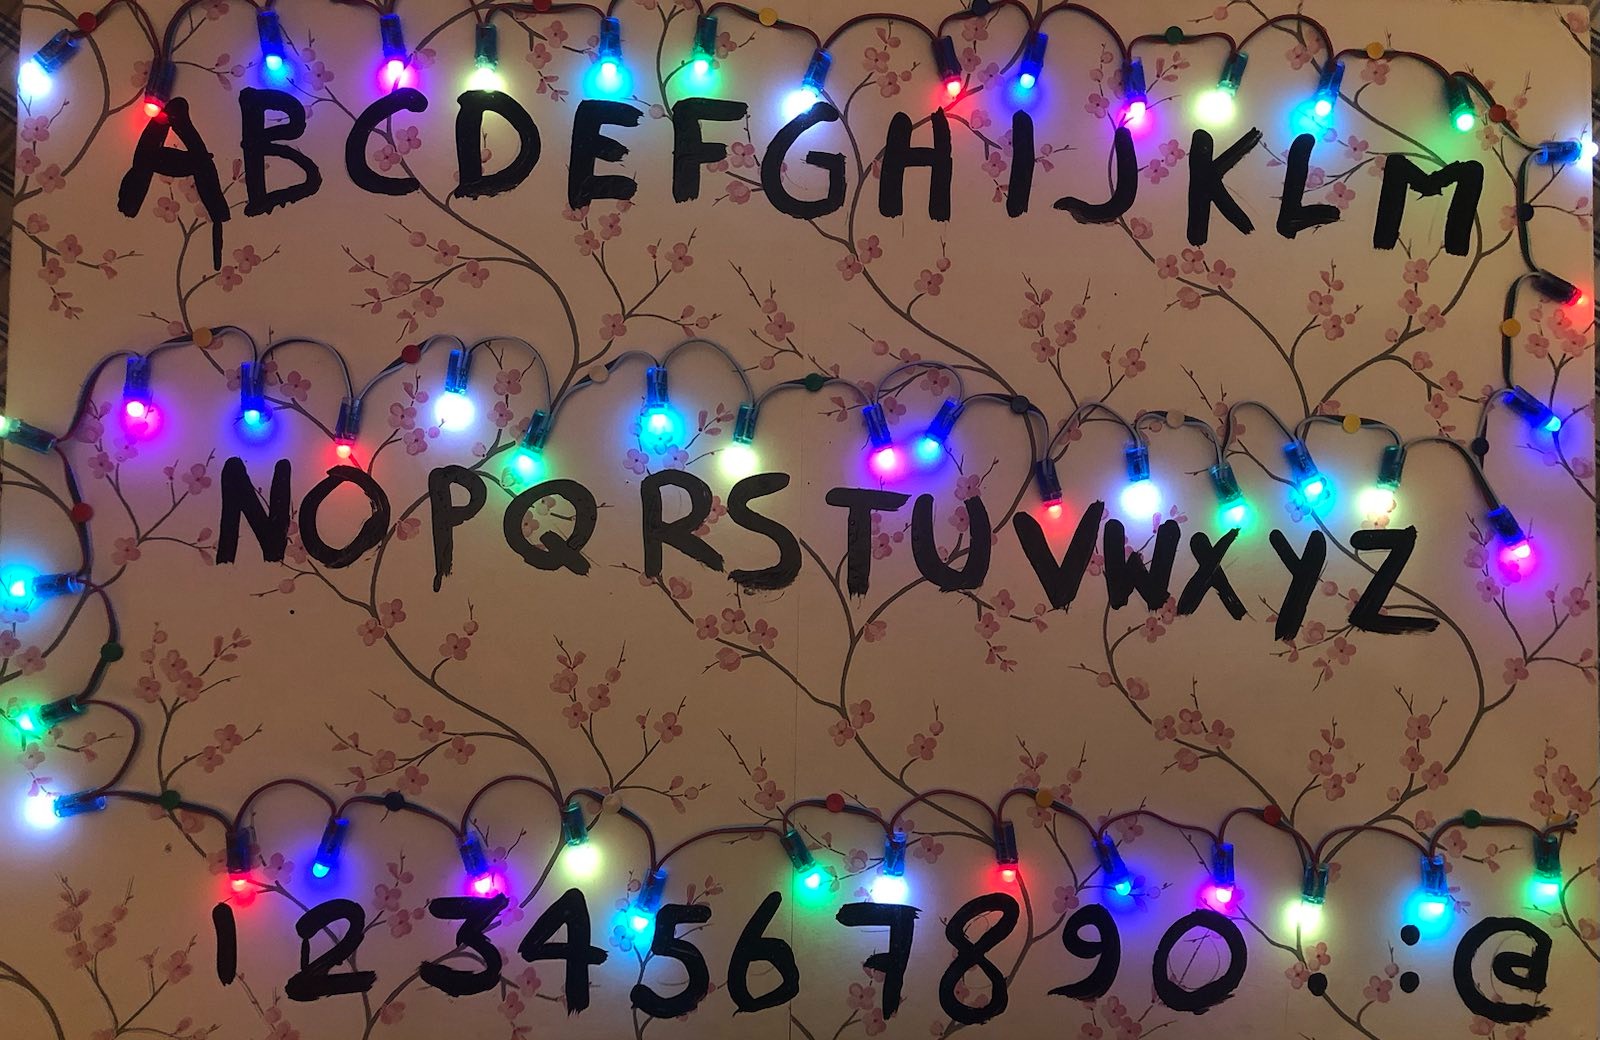 A B C D E F G H I J K L M
N O P Q R S T U V W X Y Z
1 2 3 4 5 6 7 8 9 0 . : @